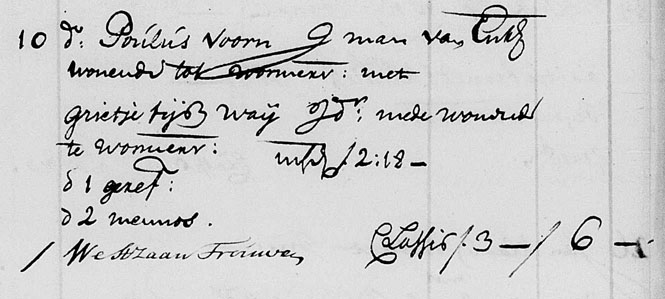 10 dr. Poulus Voorn J man van Enkh
wonende tot wormer: met
grietje tijsz waij J dr: mede wonende
te wormer: f 2:18 —
d 1 geref:
d 2 mennos.
/ Westzaan Trouwen Classis f 3 — / 6 —